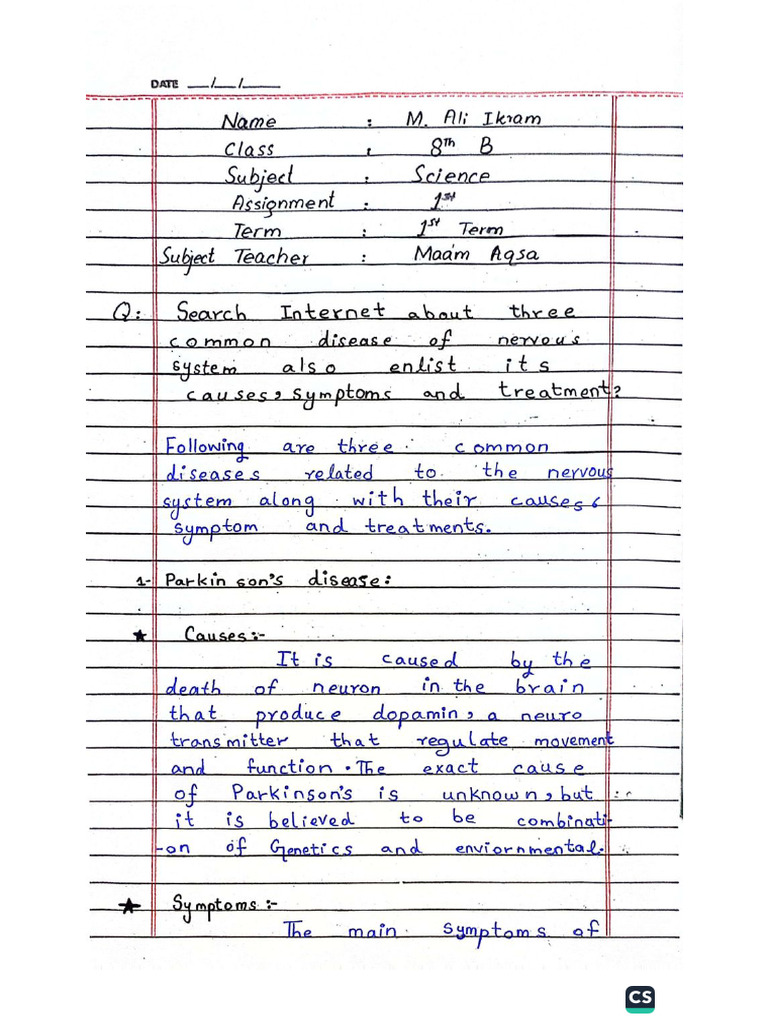 DATE __/__/____
Name : M. Ali Ikram
Class : 8Th B
Subject : Science
Assignment : 1st
Term : 1st Term
Subject Teacher : Maa'm Aqsa
Q: Search Internet about three
common disease of nervous
system also enlist its
causes, symptoms and treatment?
Following are three common
diseases related to the nervous
system along with their causes,
symptom and treatments.
1- Parkinson's disease:
★ Causes:-
It is caused by the
death of neuron in the brain
that produce dopamin, a neuro
transmitter that regulate movement
and function. The exact cause
of Parkinson's is unknown, but
it is believed to be combinati-
-on of Genetics and enviornmental.
★ Symptoms:-
The main symptoms of
CS